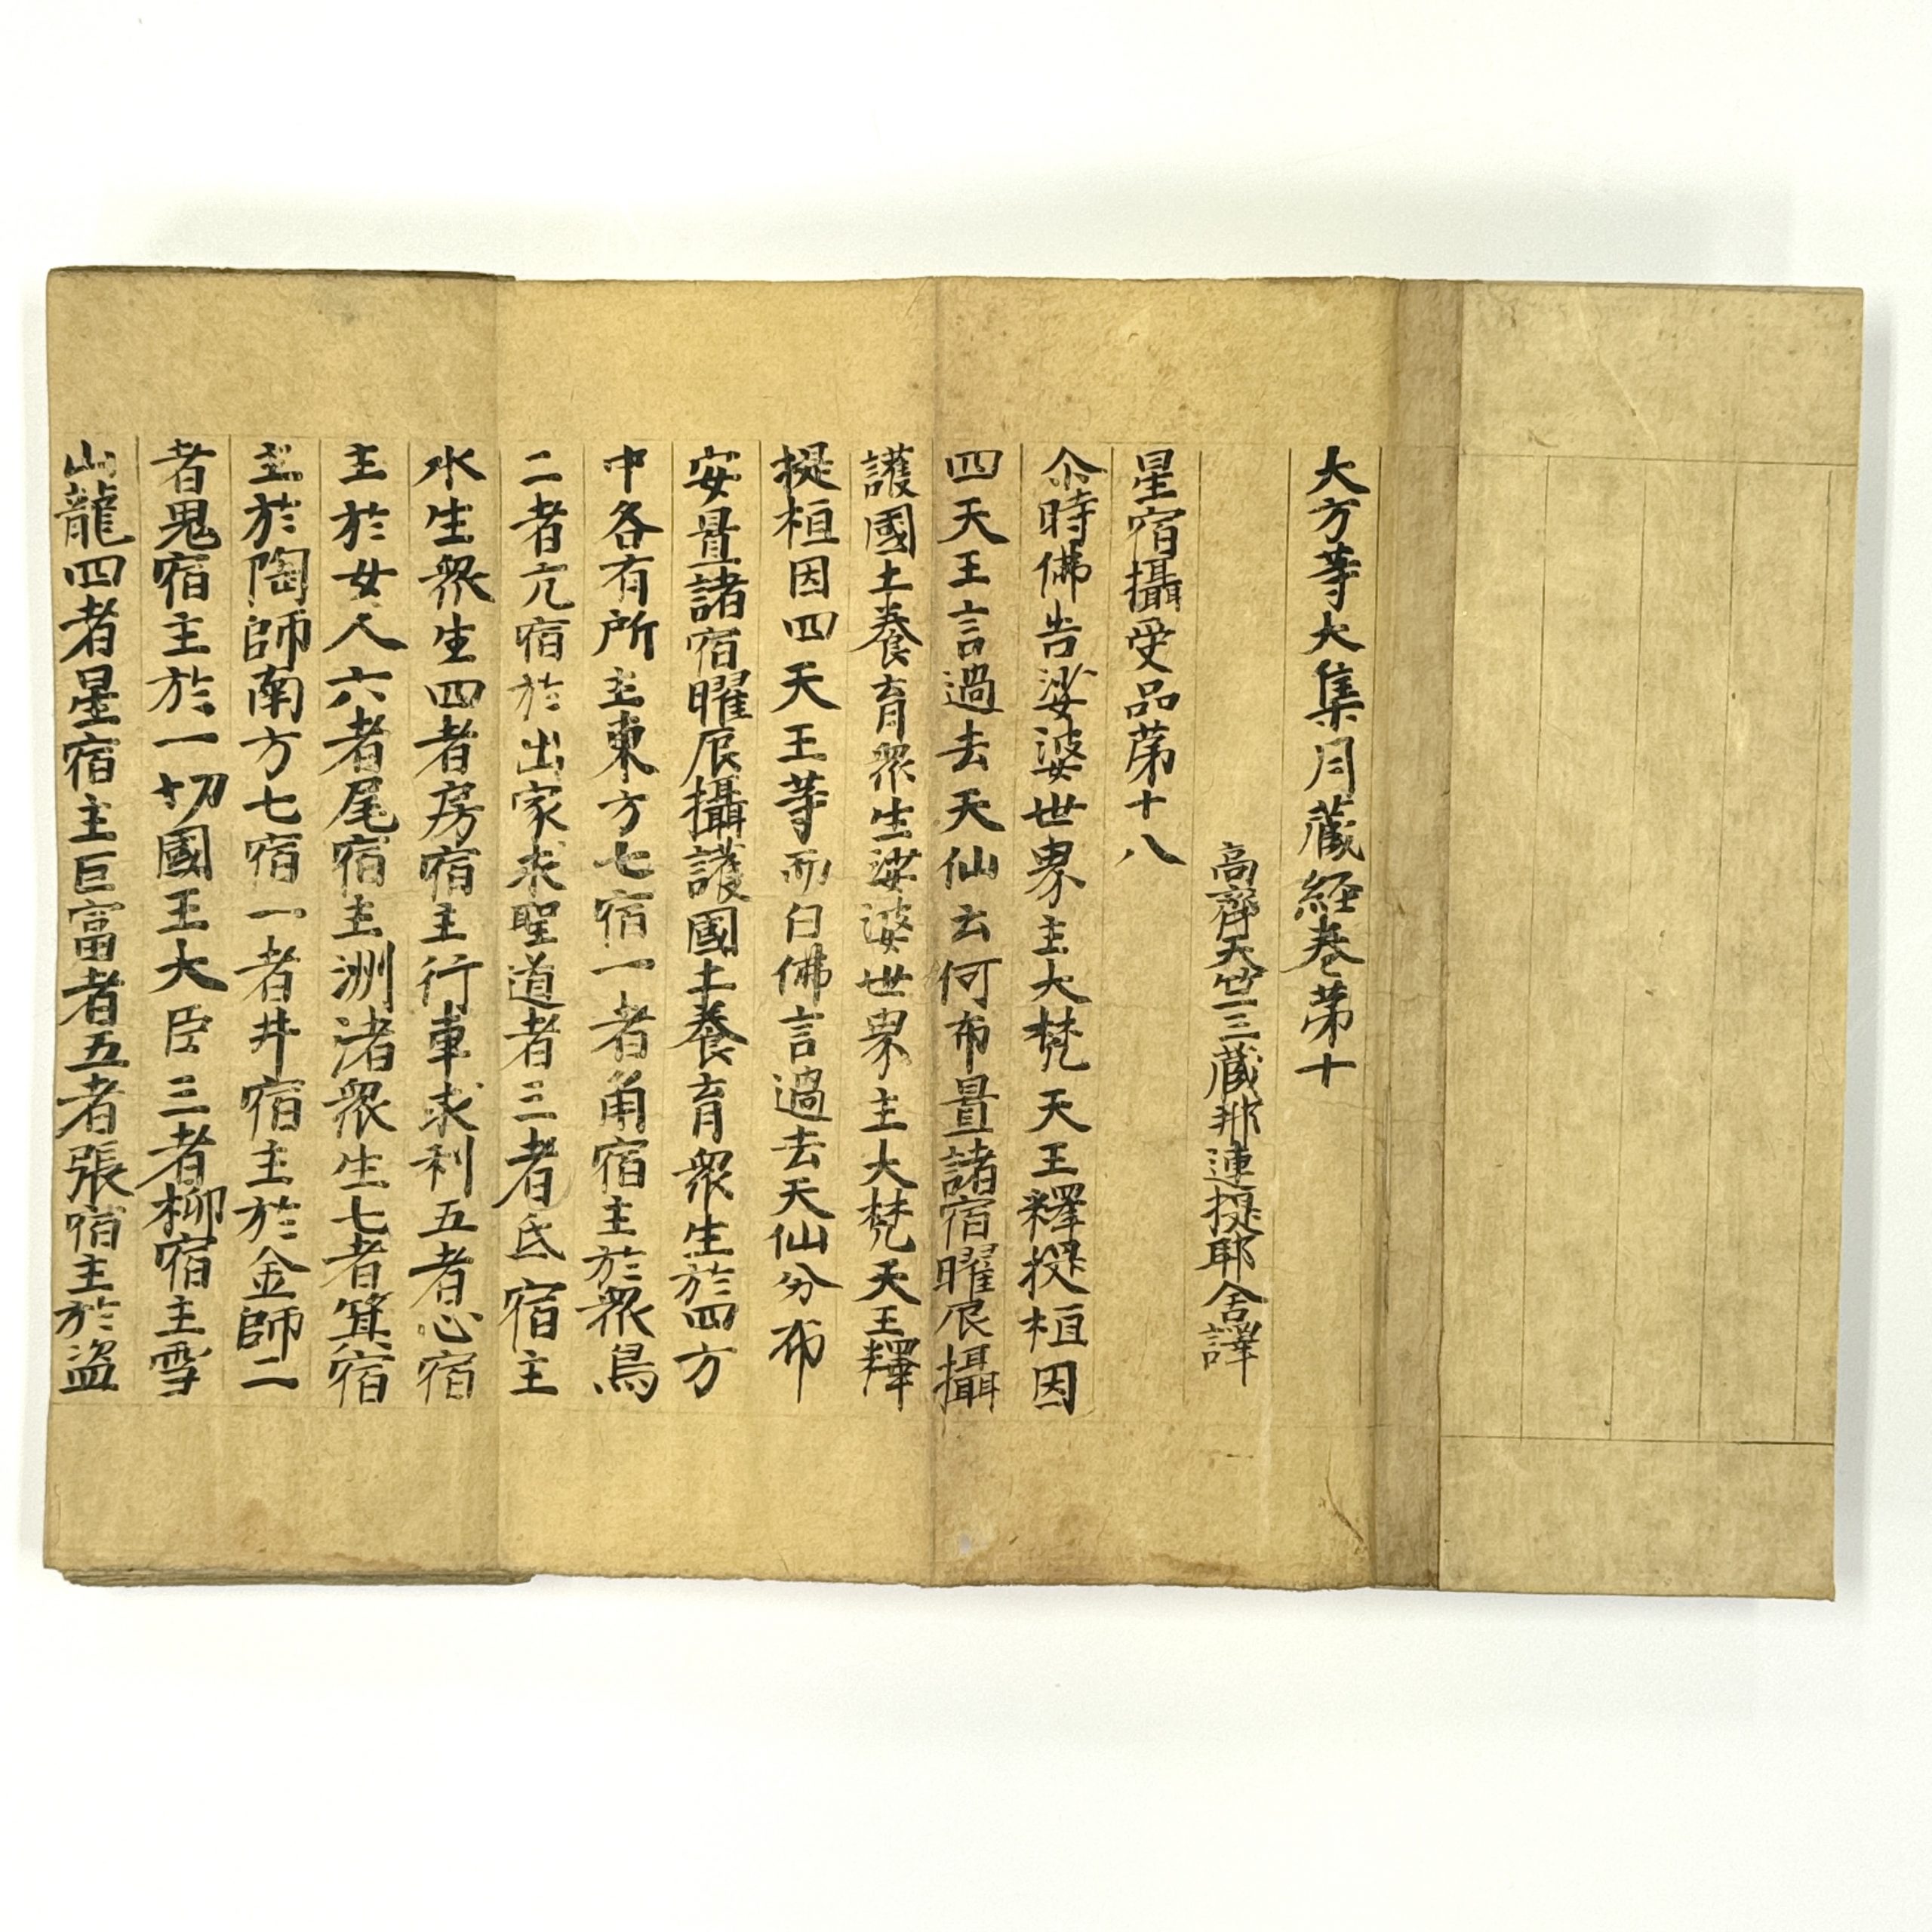 大方等大集月蔵経巻第十
高齊天竺三蔵那連提耶舍譯
星宿攝受品第十八
尒時佛告娑婆世界主大梵天王釋提桓因
四天王言過去天仙云何布置諸宿曜辰攝
護國土養育衆生娑婆世界主大梵天王釋
提桓因四天王等而白佛言過去天仙分布
安置諸宿曜辰攝護國土養育衆生於四方
中各有所主東方七宿一者角宿主於衆鳥
二者亢宿於出家求聖道者三者氐宿主
水生衆生四者房宿主行車求利五者心宿
主於女人六者尾宿主洲渚衆生七者箕宿
主於陶師南方七宿一者井宿主於金師二
者鬼宿主於一切國王大臣三者柳宿主雪
山龍四者星宿主巨富者五者張宿主於盗